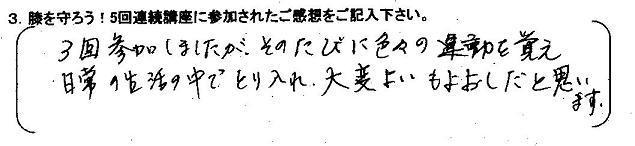 3. 膝を守ろう！5回連続講座に参加されたご感想をご記入下さい。
3回参加しましたが、そのたびに色々の運動を覚え
日常の生活の中でとり入れ、大変よいもよおしだと思い
ます。